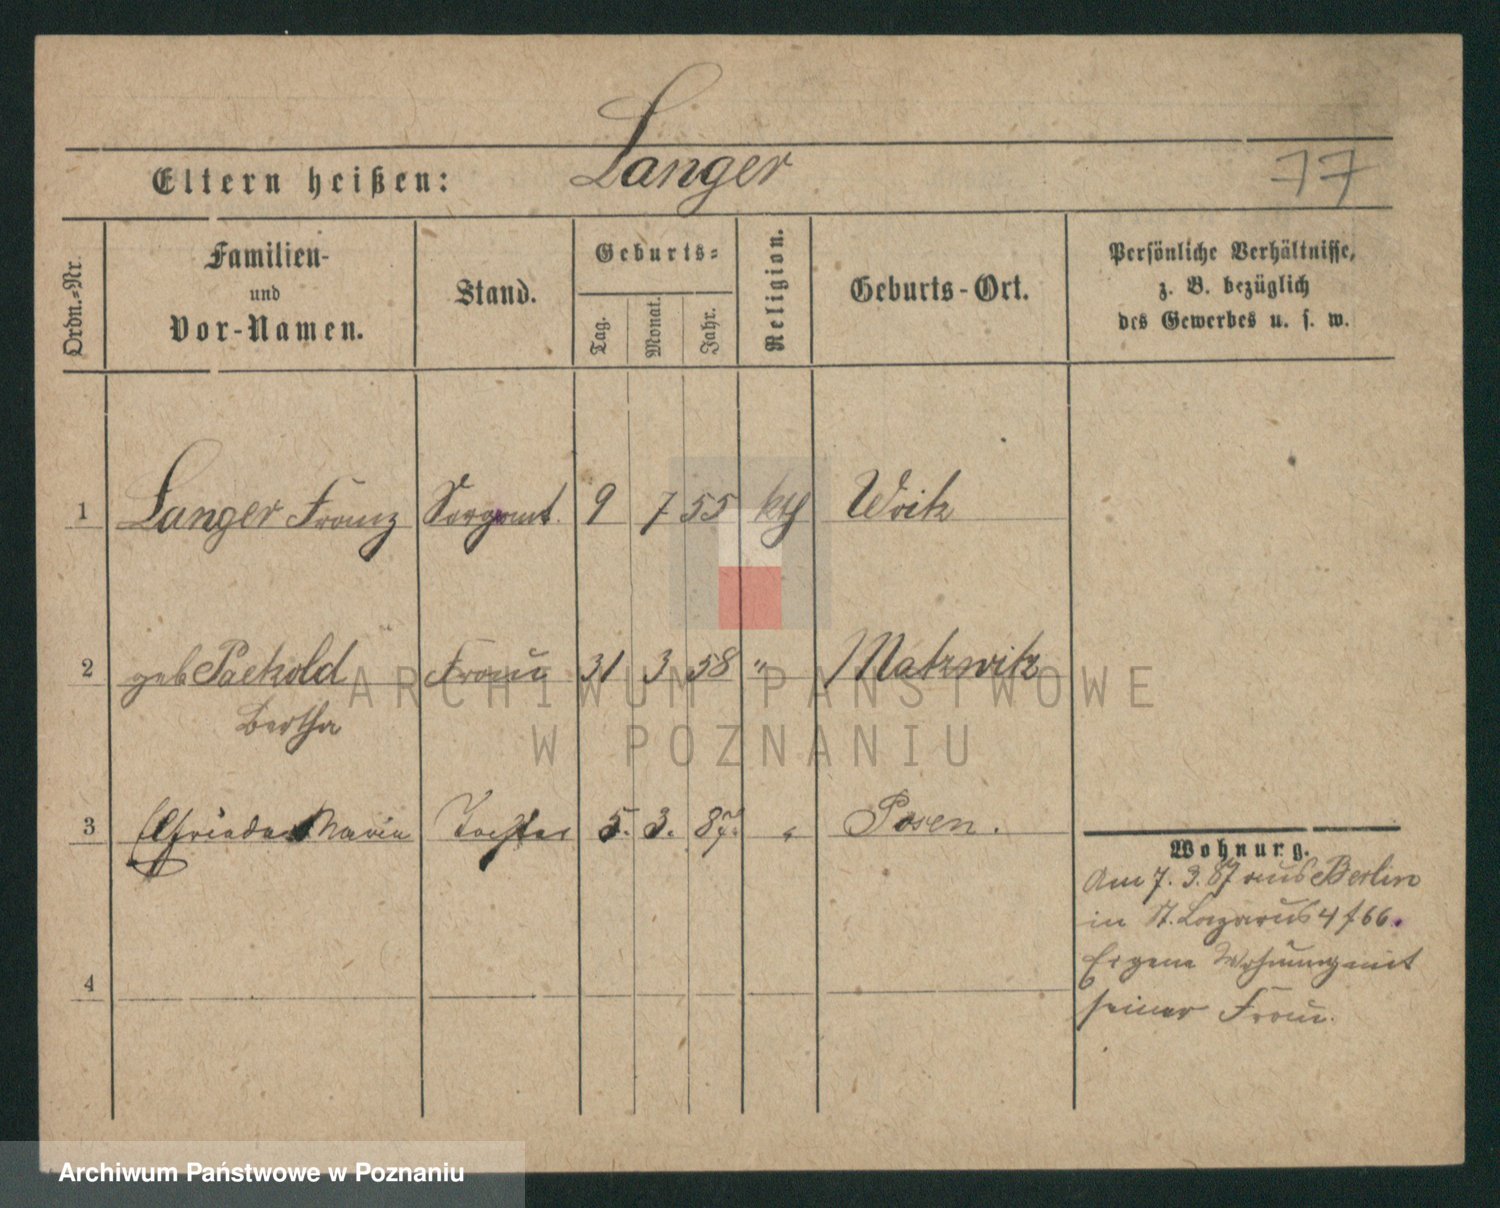 Langer
Eltern heißen: 77
Ordn.-Nr.
Familien-
und
Vor-Namen.
Stand.
Geburts-
Tag.
Monat.
Jahr.
Religion.
Geburts-Ort.
Persönliche Verhältnisse,
z. B. bezüglich
des Gewerbes u. s. w.
1 Langer Franz Sergeant. 9 7 55 kth Woitz
2 geb Paetzold Frau 31 3 58 " Matzwitz
Bertha
3 Elfriede Maria Tochter 5. 3. 87. " Posen.
Wohnung.
Am 7. 3. 87 aus Berlin
in St. Lazarus 4 f 66.
Eigene Wohnung mit
seiner Frau.
4
ARCHIWUM PAŃSTWOWE
W POZNANIU
Archiwum Państwowe w Poznaniu